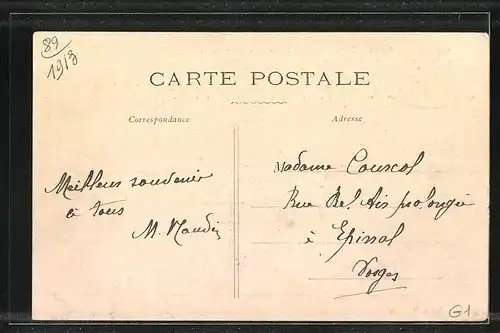 89
1913
CARTE POSTALE
Correspondance
Adresse
Meilleur souvenir
à tous
M. Naudin
Madame Courcol
Rue Bel Air prolongée
à Epinal
Vosges
G1